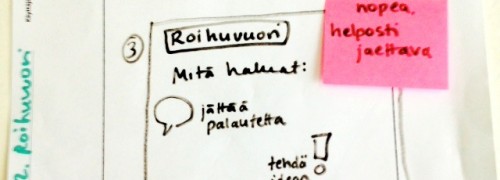 2. Roihuvuori
3
Roihuvuori
Mitä haluat:
jättää
palautetta
tehdä
nopea,
helposti
jaettava